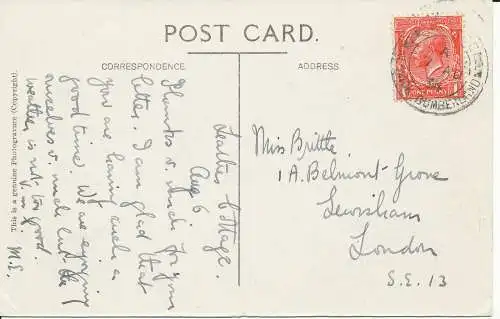 POST CARD.
CORRESPONDENCE.
ADDRESS
This is a genuine Photogravure (Copyright).
Cottage.
Aug 6
Thanks v. much for your
letter. I am glad that
you are having such a
good time. We are enjoying
ourselves v. much but the
weather is not too good.
M.E.
Miss Brittle
1A. Belmont Grove
Lewisham
London
S.E. 13
ONE PENNY